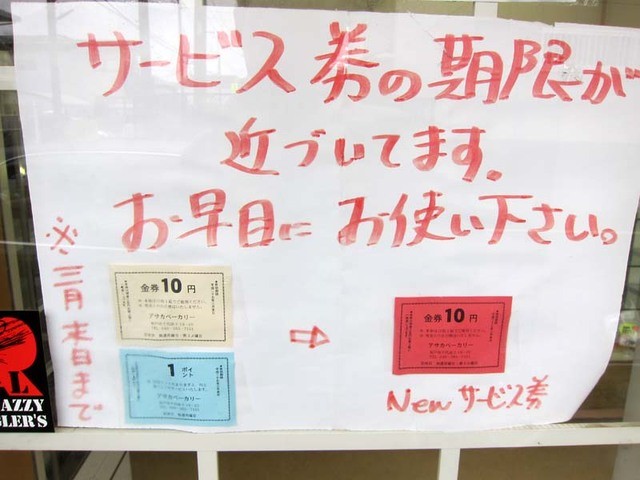 サービス券の期限が
近づいてます。
お早目に お使い下さい。
※三月末日まで
金券10円
アサカベーカリー
1ポイント
アサカベーカリー
金券10円
アサカベーカリー
New サービス券
L
AZZY
LER'S